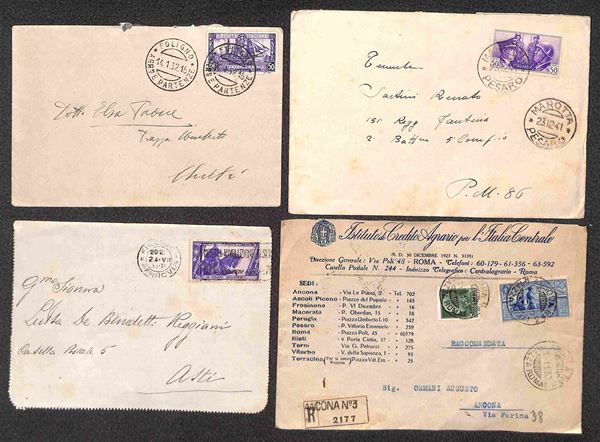 FOLIGNO
14.1.32.16
ARR. E PARTENZE
50
Dott. Elsa
Piazza Umberto
Chieti
50 50
PESARO
MAROTTA
23.12.41
PESARO
Tenente
Sartini Renato
151 Regg Fanteria
2° Battne 5 Compa
P.M. 86
24.VII
Gma Signora
Lidia De Benedetti Reggiani
Casella Postale 5
Asti
Istituto di Credito Agrario per l'Italia Centrale
R. D. 30 DICEMBRE 1923 N. 3139)
Direzione Generale: Via Poli 48 - ROMA - Telefoni: 60-179 - 61-356 - 63-592
Casella Postale N. 244 - Indirizzo Telegrafico: Centralagrario - Roma
SEDI:
Ancona - Via Le Piana, 2 - Tel. 702
Ascoli Piceno - Piazza del Popolo - 145
Frosinone - P. VI Dicembre - 16
Macerata - P. Oberdan, 15 - 18
Perugia - Piazza Umberto I, 10 - 547
Pesaro - P. Vittorio Emanuele - 259
Roma - Piazza Poli, 45 - 60179
Rieti - V. Porta Cintia, 37 - 128
Terni - Via G. Petrucci - 275
Viterbo - V. della Sapienza, 1 - 93
Terracina - Piazza Vitt. Em. - 25
RACCOMANDATA
Sig. OSMANI AUGUSTO
ANCONA
Via Farina 38
R
ANCONA Nº 3
2177